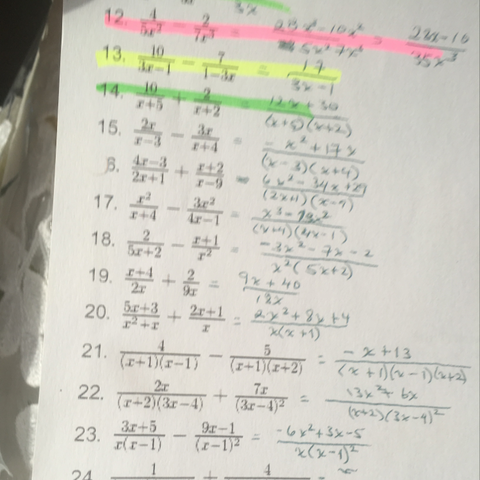 3x
12. 4/5x² - 2/7x³ = 28x³-10x²/5x² 7x³ = 28x-10/35x³
13. 10/3x-1 - 7/1-3x = 17/3x-1
14. 10/x+5 + 2/x+2 = 12x+30/(x+5)(x+2)
15. 2x/x-3 - 3x/x+4 = -x²+17x/(x-3)(x+4)
6. 4x-3/2x+1 + x+2/x-9 = 6x²-34x+29/(2x+1)(x-9)
17. x²/x+4 - 3x²/4x-1 = x³-13x²/(x+4)(4x-1)
18. 2/5x+2 - x+1/x² = -3x²-7x-2/x²(5x+2)
19. x+4/2x + 2/9x = 9x+40/18x
20. 5x+3/x²+x + 2x+1/x = 2x²+8x+4/x(x+1)
21. 4/(x+1)(x-1) - 5/(x+1)(x+2) = -x+13/(x+1)(x-1)(x+2)
22. 2x/(x+2)(3x-4) + 7x/(3x-4)² = 13x²+6x/(x+2)(3x-4)²
23. 3x+5/x(x-1) - 9x-1/(x-1)² = -6x²+3x-5/x(x-1)²
24. 1 + 4 =